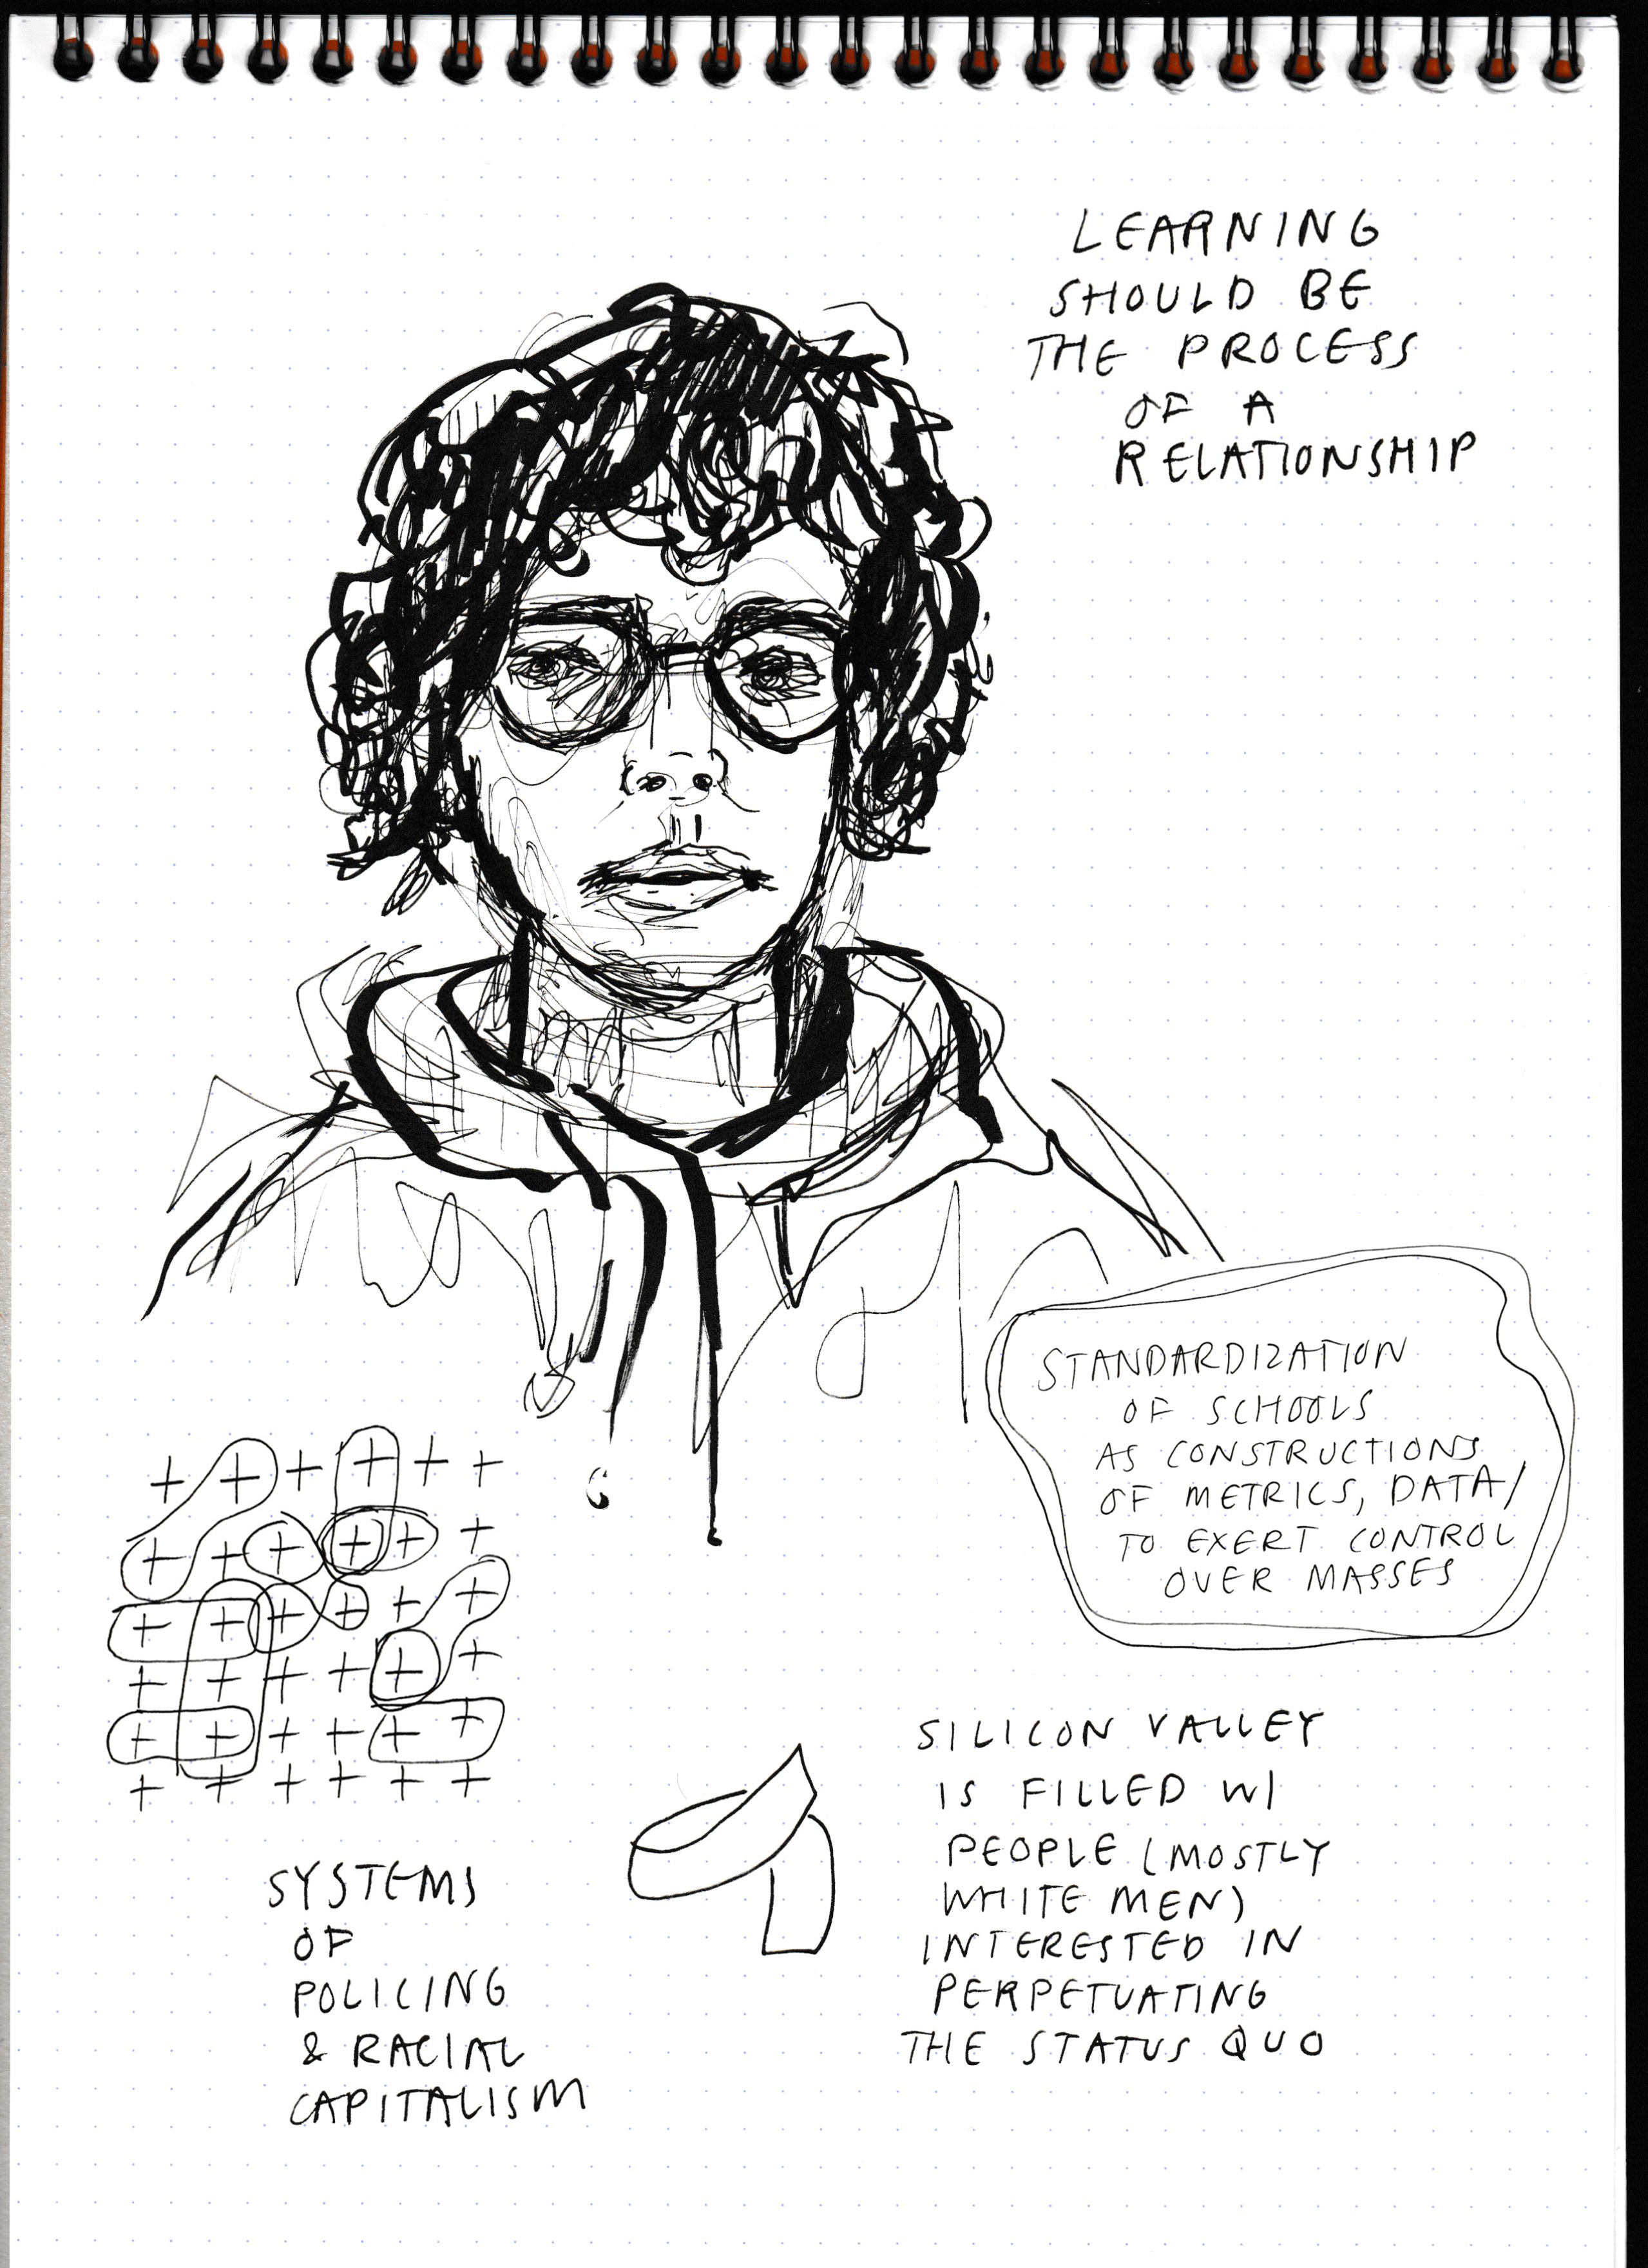 LEARNING
SHOULD BE
THE PROCESS
OF A
RELATIONSHIP
STANDARDIZATION
OF SCHOOLS
AS CONSTRUCTIONS
OF METRICS, DATA/
TO EXERT CONTROL
OVER MASSES
SILICON VALLEY
IS FILLED W/
PEOPLE (MOSTLY
WHITE MEN)
INTERESTED IN
PERPETUATING
THE STATUS QUO
SYSTEMS
OF
POLICING
& RACIAL
CAPITALISM